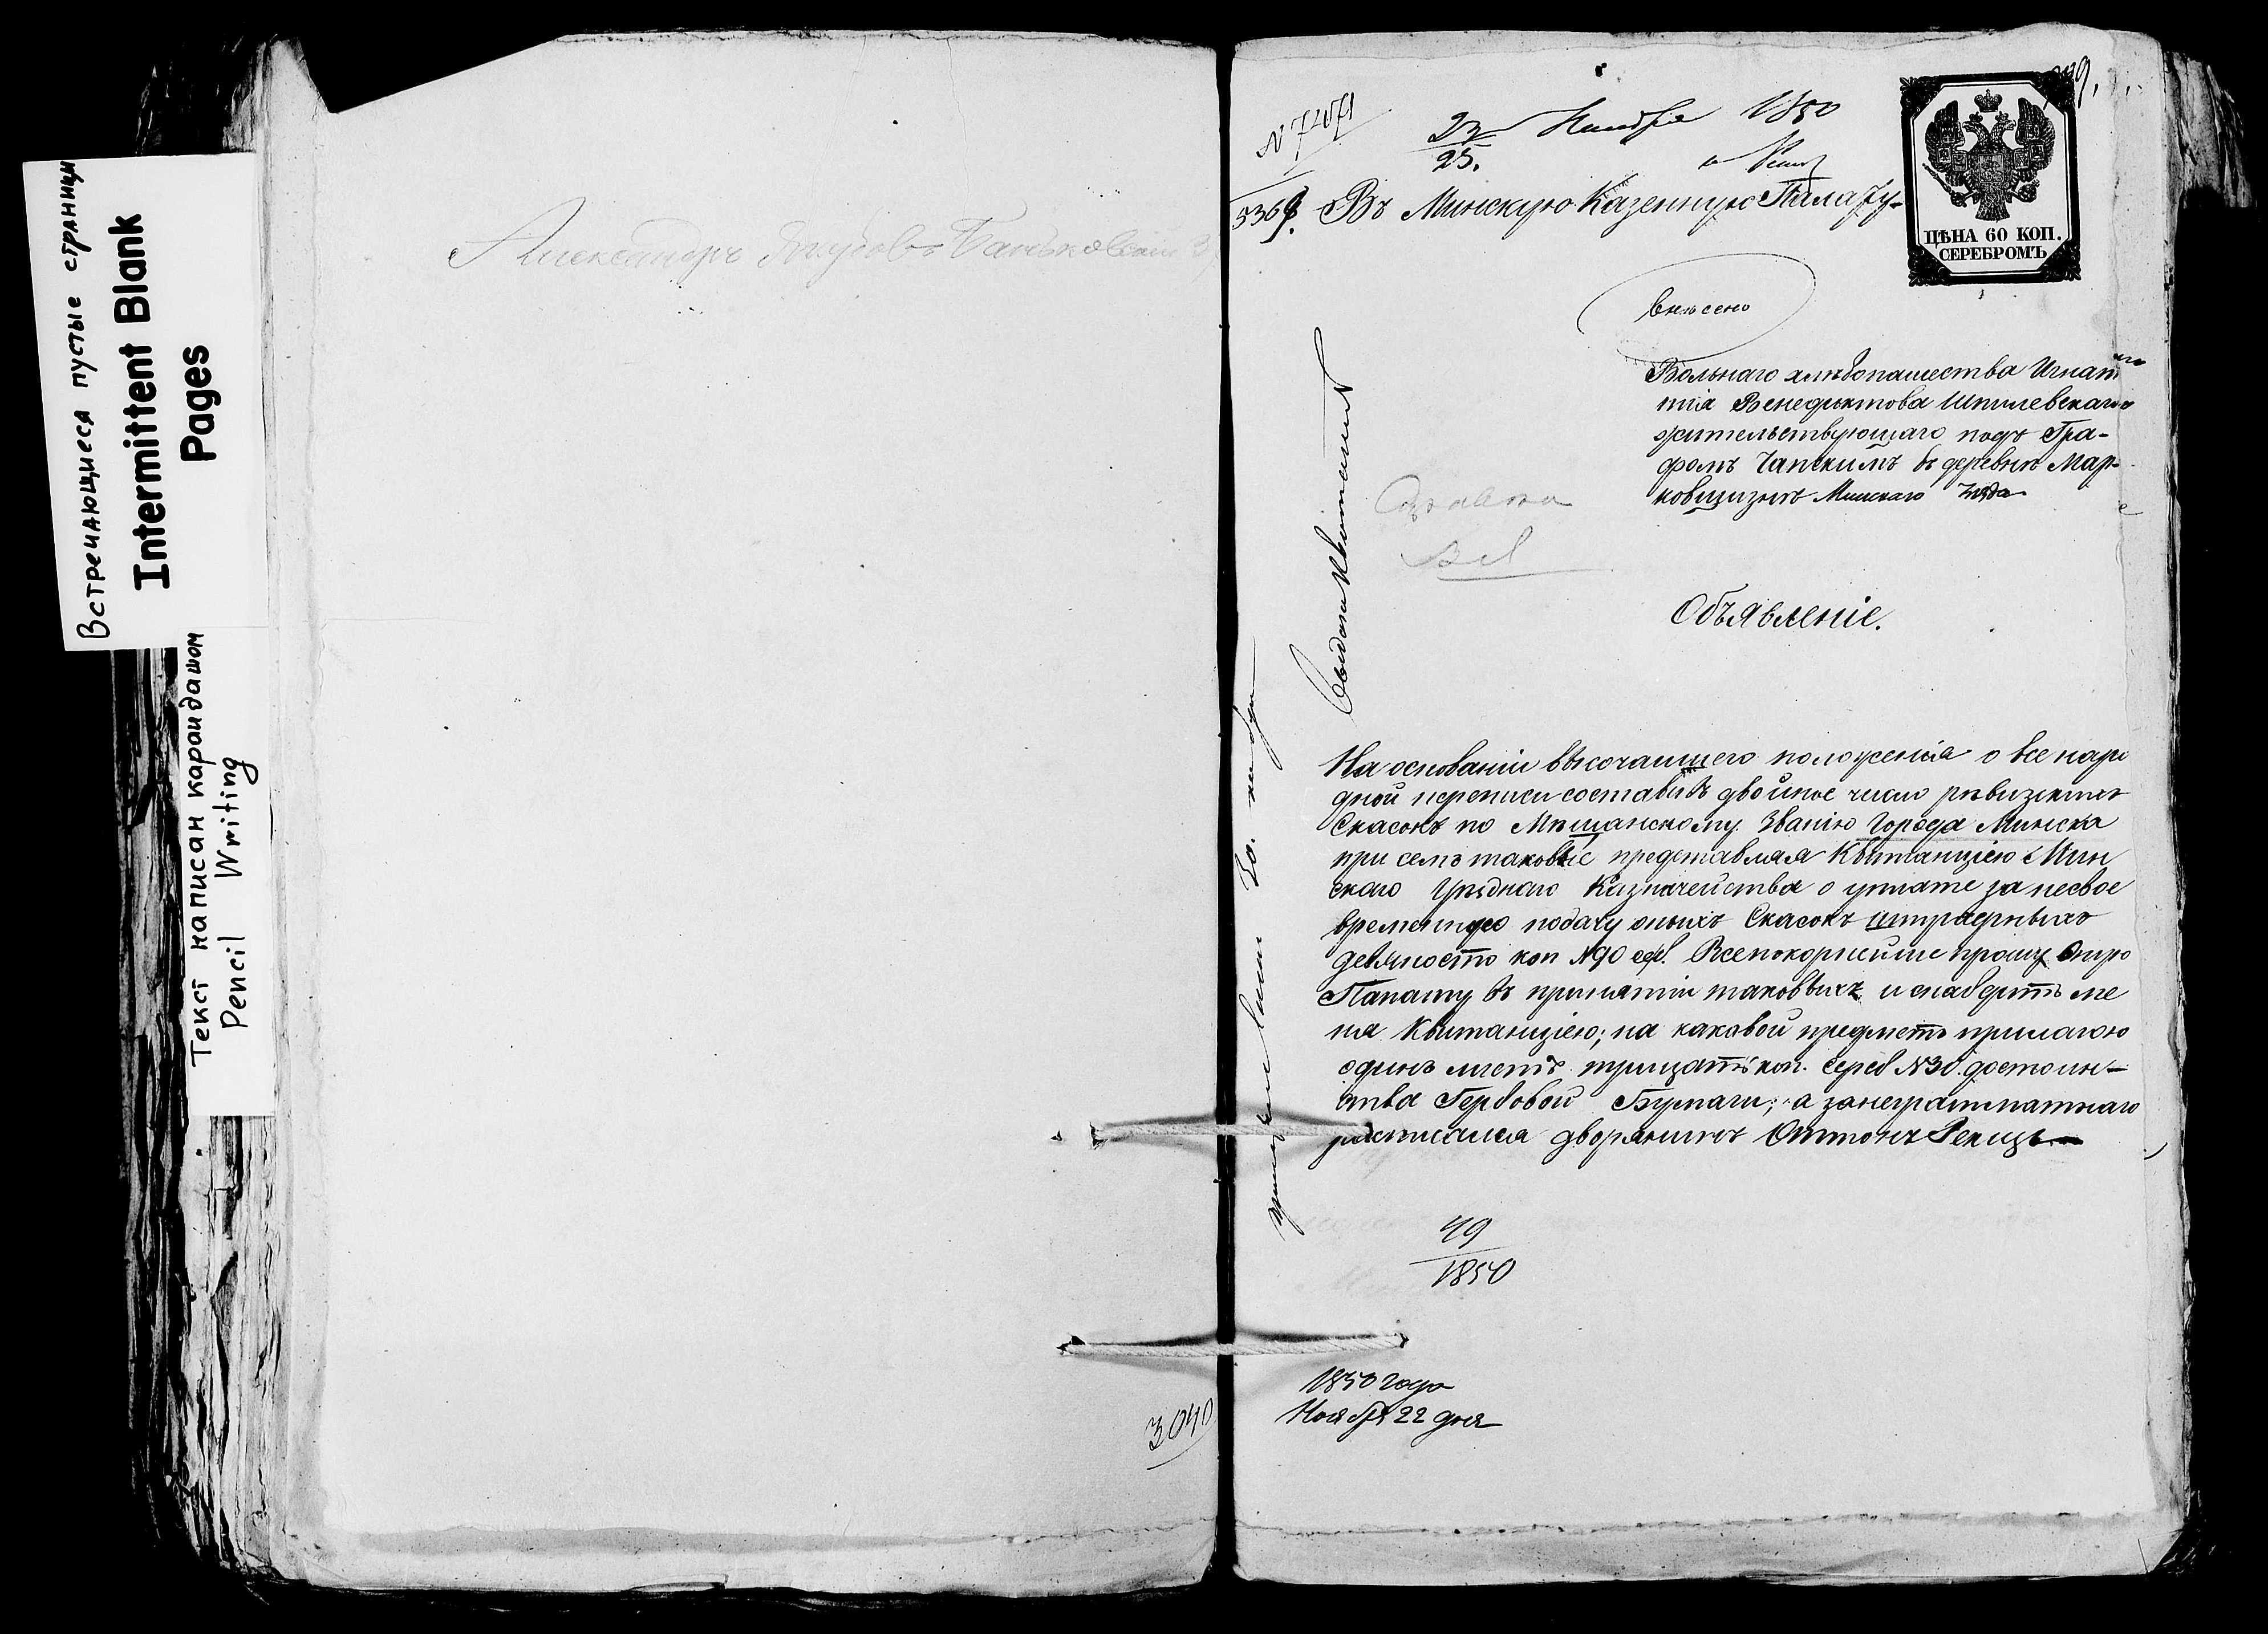 Встречающиеся пустые страницы
Intermittent Blank
Pages
Текст написан карандашом
Pencil Writing
Александръ Якубовъ Баньковскій
3040
N 7471
22 Ноября 1850
25.
5369.
Въ Минскую Казенную Палату
ЦѢНА 60 КОП.
СЕРЕБРОМЪ
внесено
Вольнаго хлѣбопашества Игнат
тія Венедыктова Шпилевскаго
жительствующаго подъ Гра-
фомъ Чапскимъ въ деревнѣ Мар-
ковщизнѣ Минскаго уѣзда
Справка
Объявленіе.
выдать квитанцію
На основаніи высочаишего положенія о все наро
дной переписи составивъ двойное число рѣвизскихъ
Скасокъ по Мѣщанскому Званію Города Минска
при семъ таковые представляя Квитанцією Мин
скаго Уѣзднаго Казначейства о уплате за несвое
временную подачу оныхъ Скасокъ штрафныхъ
девяносто коп N90 сер. Всепокорнейше прошу Оную
Палату въ принятіи таковыхъ и снабдить ме
ня Квитанцією; на каковой предметъ прилагаю
одинъ листъ трицать коп. Сереб N30. достоин-
ства Гербовой Бумаги; а за неграмматнаго
росписался дворянинъ Оттонъ
49
1850
1850 года
Ноября 22 дня